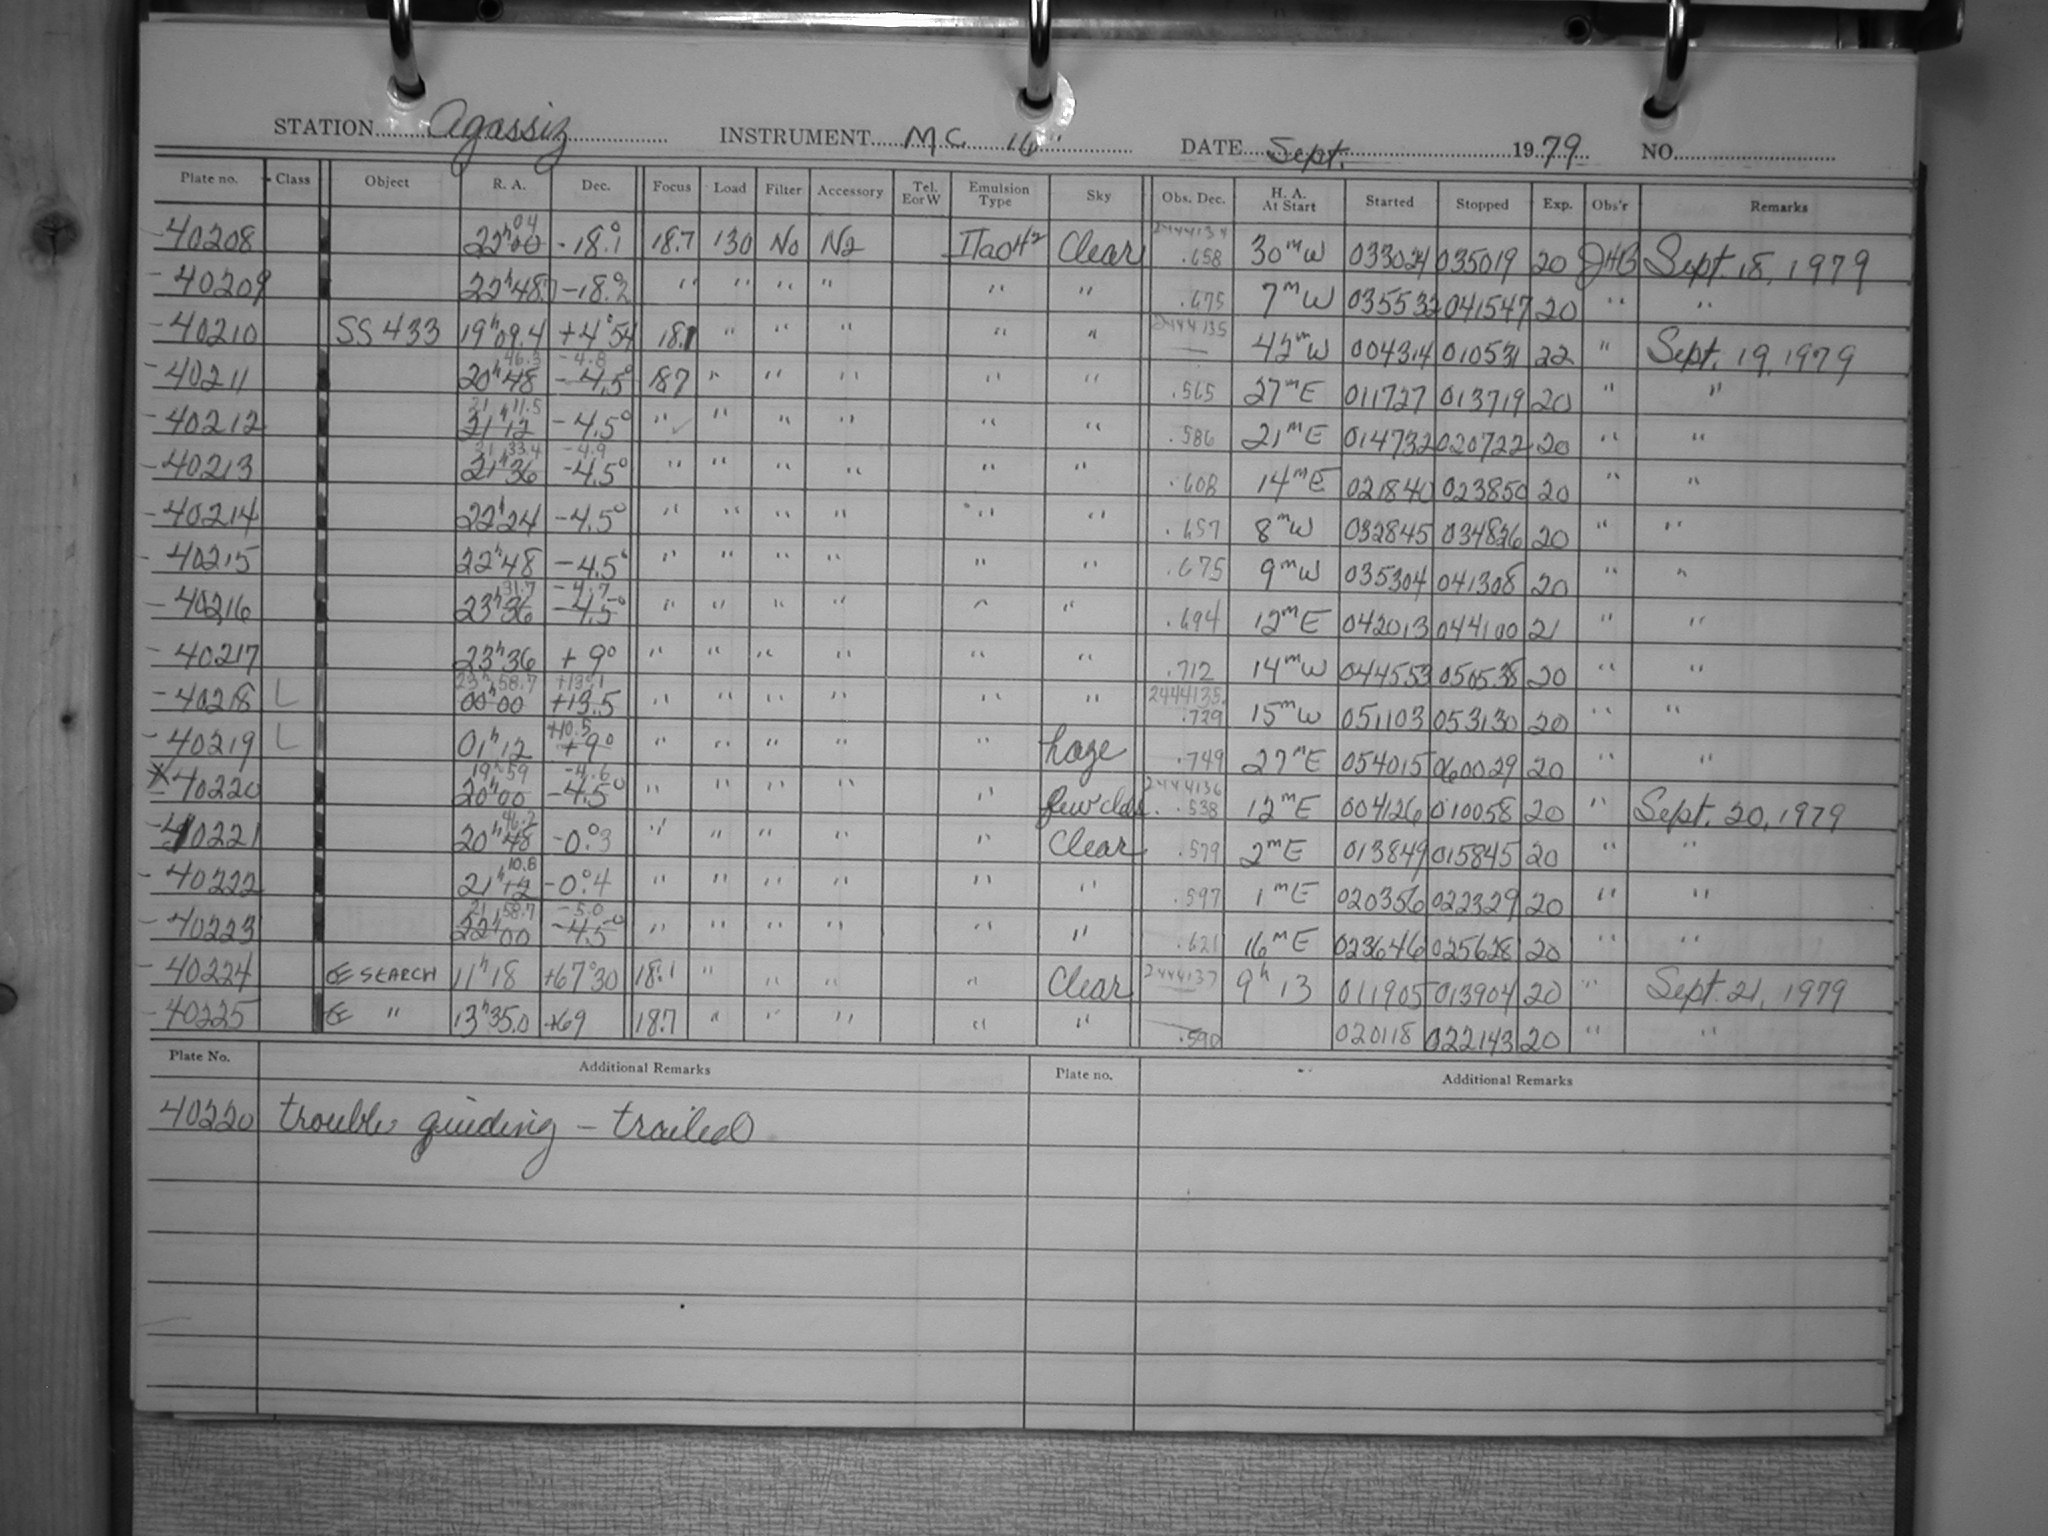 STATION Agassiz INSTRUMENT M.C. 16" DATE Sept. 1979 NO.
Plate no. Class Object R. A. Dec. Focus Load Filter Accessory Tel. E or W Emulsion Type Sky Obs. Dec. H. A. At Start Started Stopped Exp. Obs'r Remarks
-40208 22ʰ00 04 -18.°1 18.7 130 No N2 IIaO H2 Clear 2444134 .658 30ᵐW 033024 035019 20 JHB Sept. 18, 1979
-40209 22ʰ48 -18.°2 " " " " " " .675 7ᵐW 035532 041547 20 " "
-40210 SS 433 19ʰ09.4 +4°54 18.1 " " " " " 2444135 — 42ᵐW 004314 010531 22 " Sept. 19, 1979
-40211 20ʰ48 46.3 -4.5° -4.8 187 " " " " " .565 27ᵐE 011727 013719 20 " "
-40212 21ʰ12 21 11.5 -4.5° " " " " " " .586 21ᵐE 014732 020722 20 " "
-40213 21ʰ36 21 33.4 -4.5° -4.9 " " " " " " .608 14ᵐE 021840 023850 20 " "
-40214 22ʰ24 -4.5° " " " " " " .657 8ᵐW 032845 034826 20 " "
-40215 22ʰ48 -4.5° " " " " " " .675 9ᵐW 035304 041308 20 " "
-40216 23ʰ36 31.7 -4.5° -4.7 " " " " " " .694 12ᵐE 042013 044100 21 " "
-40217 23ʰ36 +9° " " " " " " .712 14ᵐW 044553 050538 20 " "
-40218 L 00ʰ00 23ʰ58.7 +13.5 +13.1 " " " " " " 2444135. .729 15ᵐW 051103 053130 20 " "
-40219 L 01ʰ12 +9° +10.5 " " " " " haze .749 27ᵐE 054015 060029 20 " "
X-40220 20ʰ00 19ʰ59 -4.5° -4.6 " " " " " few clds. 2444136 .538 12ᵐE 004126 010058 20 " Sept. 20, 1979
-40221 20ʰ48 46.2 -0.°3 " " " " " Clear .579 2ᵐE 013849 015845 20 " "
-40222 21ʰ12 10.8 -0.°4 " " " " " " .597 1ᵐE 020356 022329 20 " "
-40223 22ʰ00 21 58.7 -4.5° -5.0 " " " " " " .621 16ᵐE 023646 025628 20 " "
-40224 SEARCH 11ʰ18 +67°30 18.1 " " " " Clear 2444137 — 9ʰ13 011905 013904 20 " Sept. 21, 1979
-40225 " 13ʰ35.0 +69 18.7 " " " " " .590 020118 022143 20 " "
Plate No. Additional Remarks Plate no. Additional Remarks
40220 trouble guiding – trailed